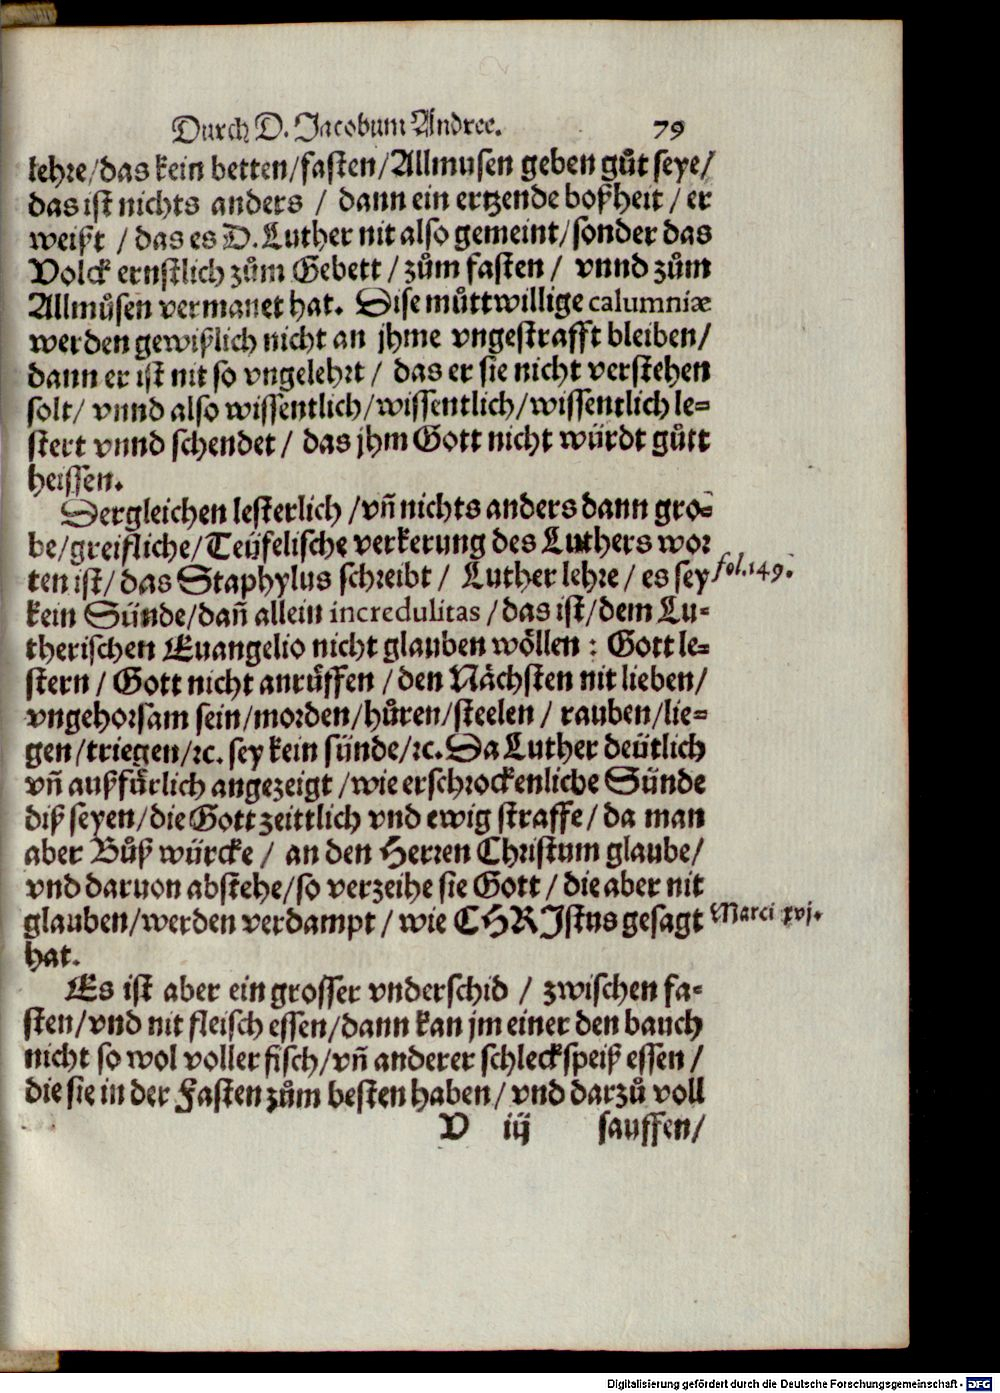 Durch D. Jacobum Andree. 79
lehre/das kein betten/fasten/Allmusen geben gůt seye/
das ist nichts anders / dann ein ertzende boßheit / er
weißt / das es D. Luther nit also gemeint/sonder das
Volck ernstlich zům Gebett / zům fasten / vnnd zům
Allmůsen vermanet hat. Dise můttwillige calumniæ
werden gewißlich nicht an jhme vngestrafft bleiben/
dann er ist nit so vngelehrt / das er sie nicht verstehen
solt/ vnnd also wissentlich/wissentlich/wissentlich le=
stert vnnd schendet / das jhm Gott nicht würdt gůtt
heissen.
Dergleichen lesterlich /vñ nichts anders dann gro=
be/greifliche/Teüfelische verkerung des Luthers wor
ten ist/ das Staphylus schreibt / Luther lehre / es sey fol.149.
kein Sünde/dañ allein incredulitas /das ist/dem Lu=
therischen Euangelio nicht glauben wöllen : Gott le=
stern / Gott nicht anrůffen /den Nächsten nit lieben/
vngehorsam sein/morden/hůren/steelen / rauben/lie=
gen/triegen/ꝛc. sey kein sünde/ꝛc. Da Luther deütlich
vñ außfürlich angezeigt /wie erschrockenliche Sünde
diß seyen/die Gott zeittlich vnd ewig straffe/ da man
aber Bůß würcke / an den Herren Christum glaube/
vnd daruon abstehe/so verzeihe sie Gott / die aber nit
glauben/werden verdampt / wie CHRJstus gesagt Marci xvj.
hat.
Es ist aber ein grosser vnderschid / zwischen fa=
sten/vnd nit fleisch essen/dann kan jm einer den bauch
nicht so wol voller fisch/vñ anderer schleckspeiß essen /
die sie in der Fasten zům besten haben/ vnd darzů voll
V iij sauffen/
Digitalisierung gefördert durch die Deutsche Forschungsgemeinschaft - DFG